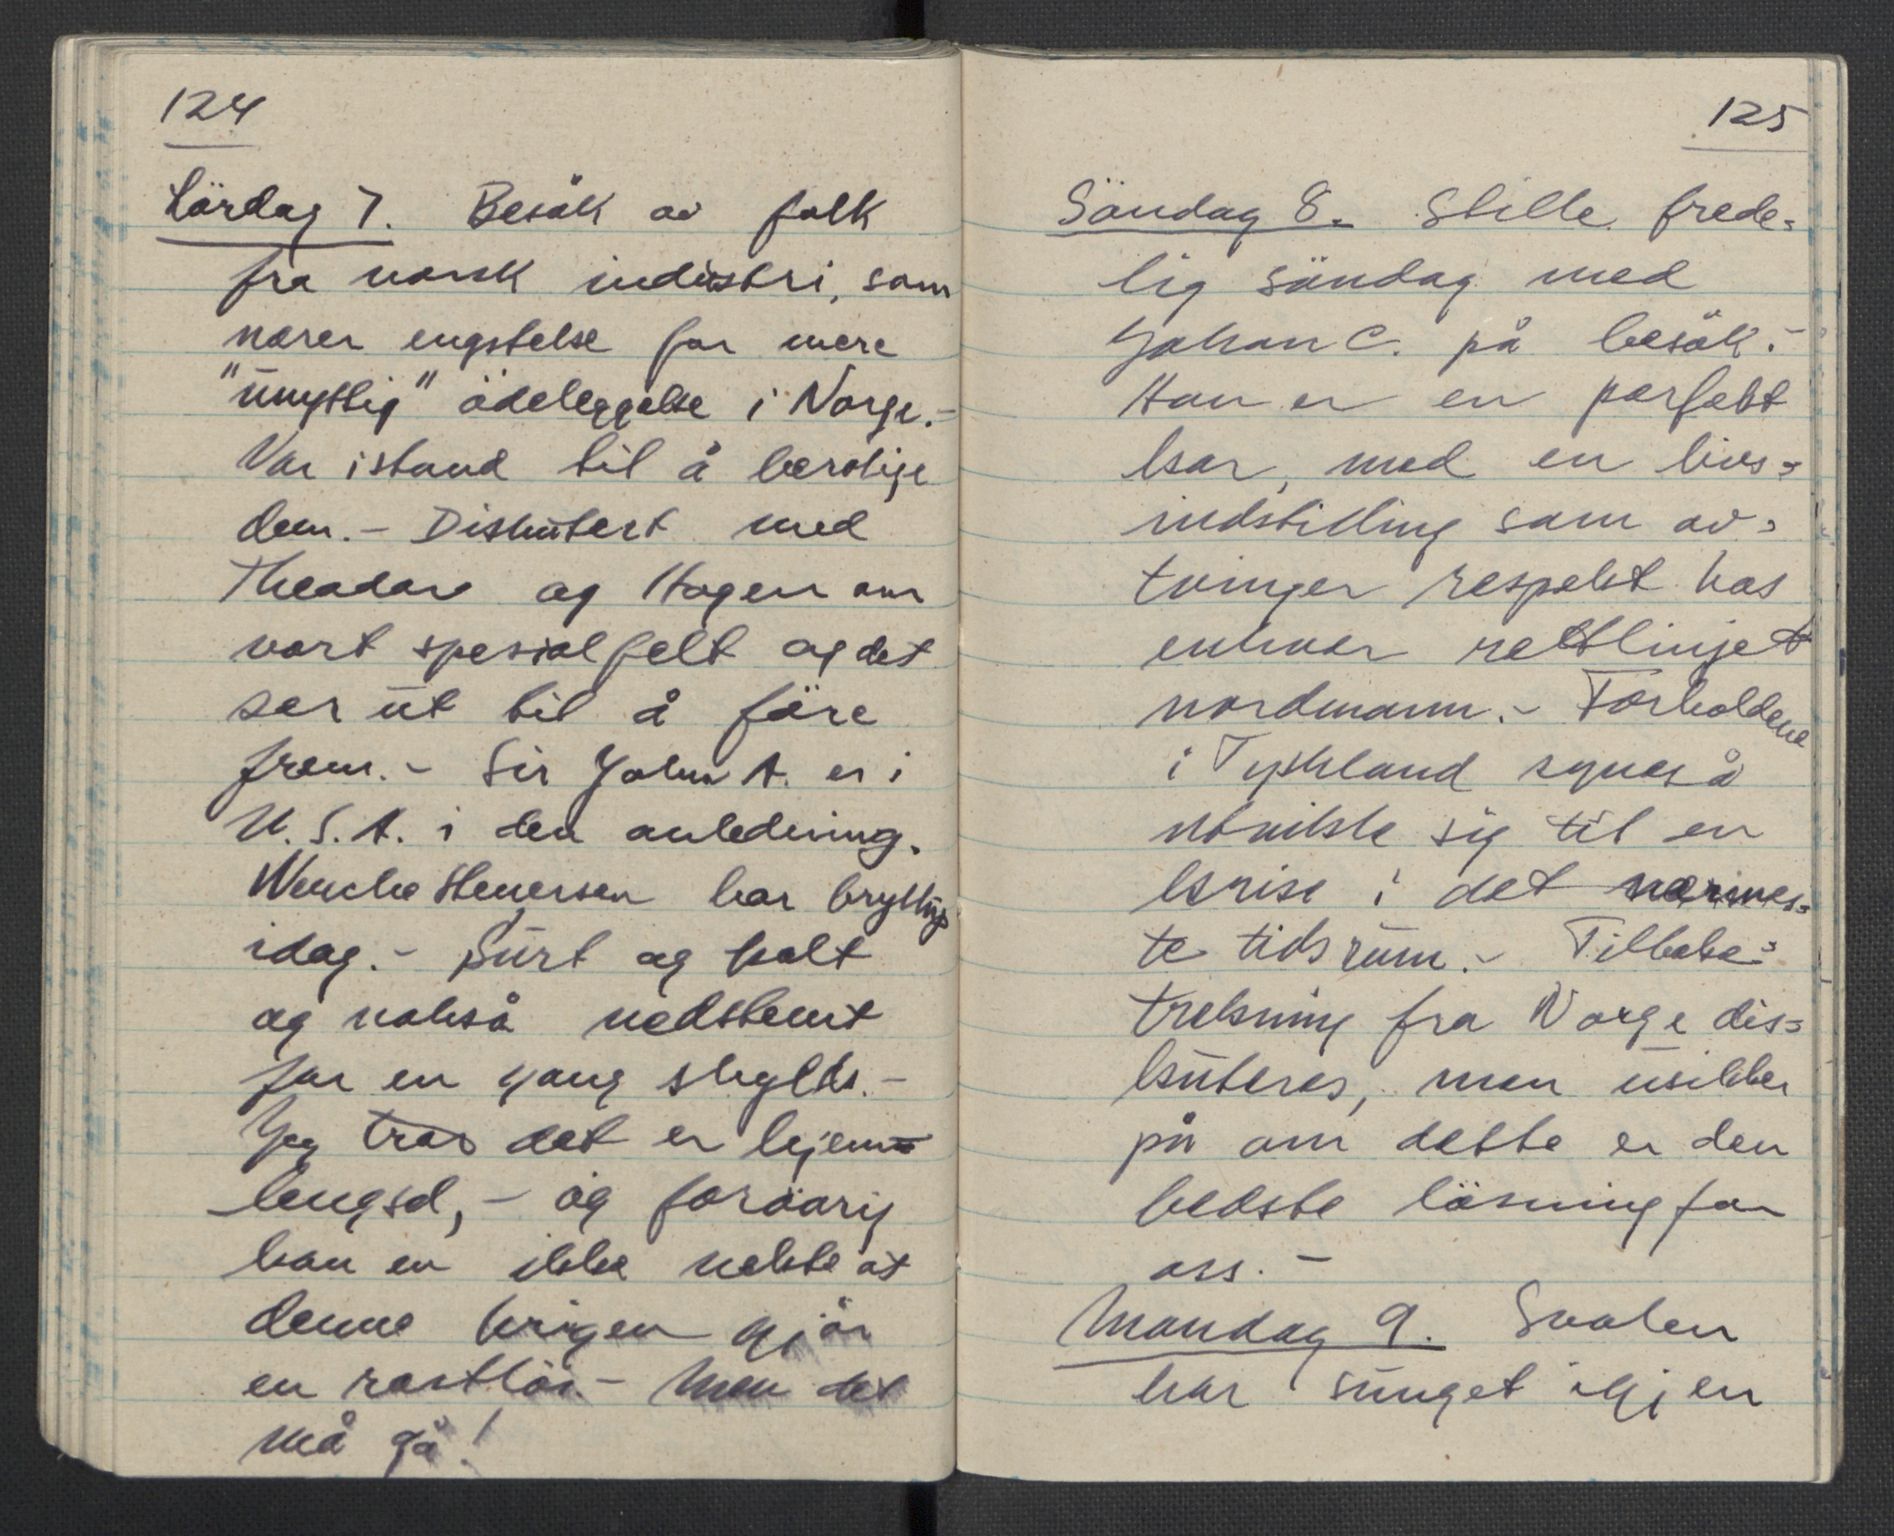 124
Lördag 7. Besök av folk
fra norsk industri, som
nærer engstelse for mere
"unyttig" ödeleggelse i Norge.-
Var istand til å berolige
dem.- Diskutert med
Theodor og Hagen om
vort spesialfelt og det
ser ut til å före
frem.- Sir John A. er i
U.S.A. i den anledning.
Wenche Stenersen har bryllup
idag.- Surt og kalt
og nokså nedstemt
for en gang skyld.-
Jeg tror det er hjem=
lengsel,- og forövrig
kan en ikke nekte at
denne krigen gjör
en rastlös.- Men det
må gå!
125
Söndag 8. Stille frede=
lig söndag med
Johan C. på besök.-
Han er en perfekt
kar, med en livs=
indstilling som av=
tvinger respekt hos
enhver rettlinjet
nordmann.- Forholdene
i Tyskland synes å
utvikle sig til en
krise i det nærmes=
te tidsrum.- Tilbake=
trekning fra Norge dis=
kuteres, men usikker
på om dette er den
bedste lösning for
oss.-
Mandag 9. Svalen
har sunget igjen